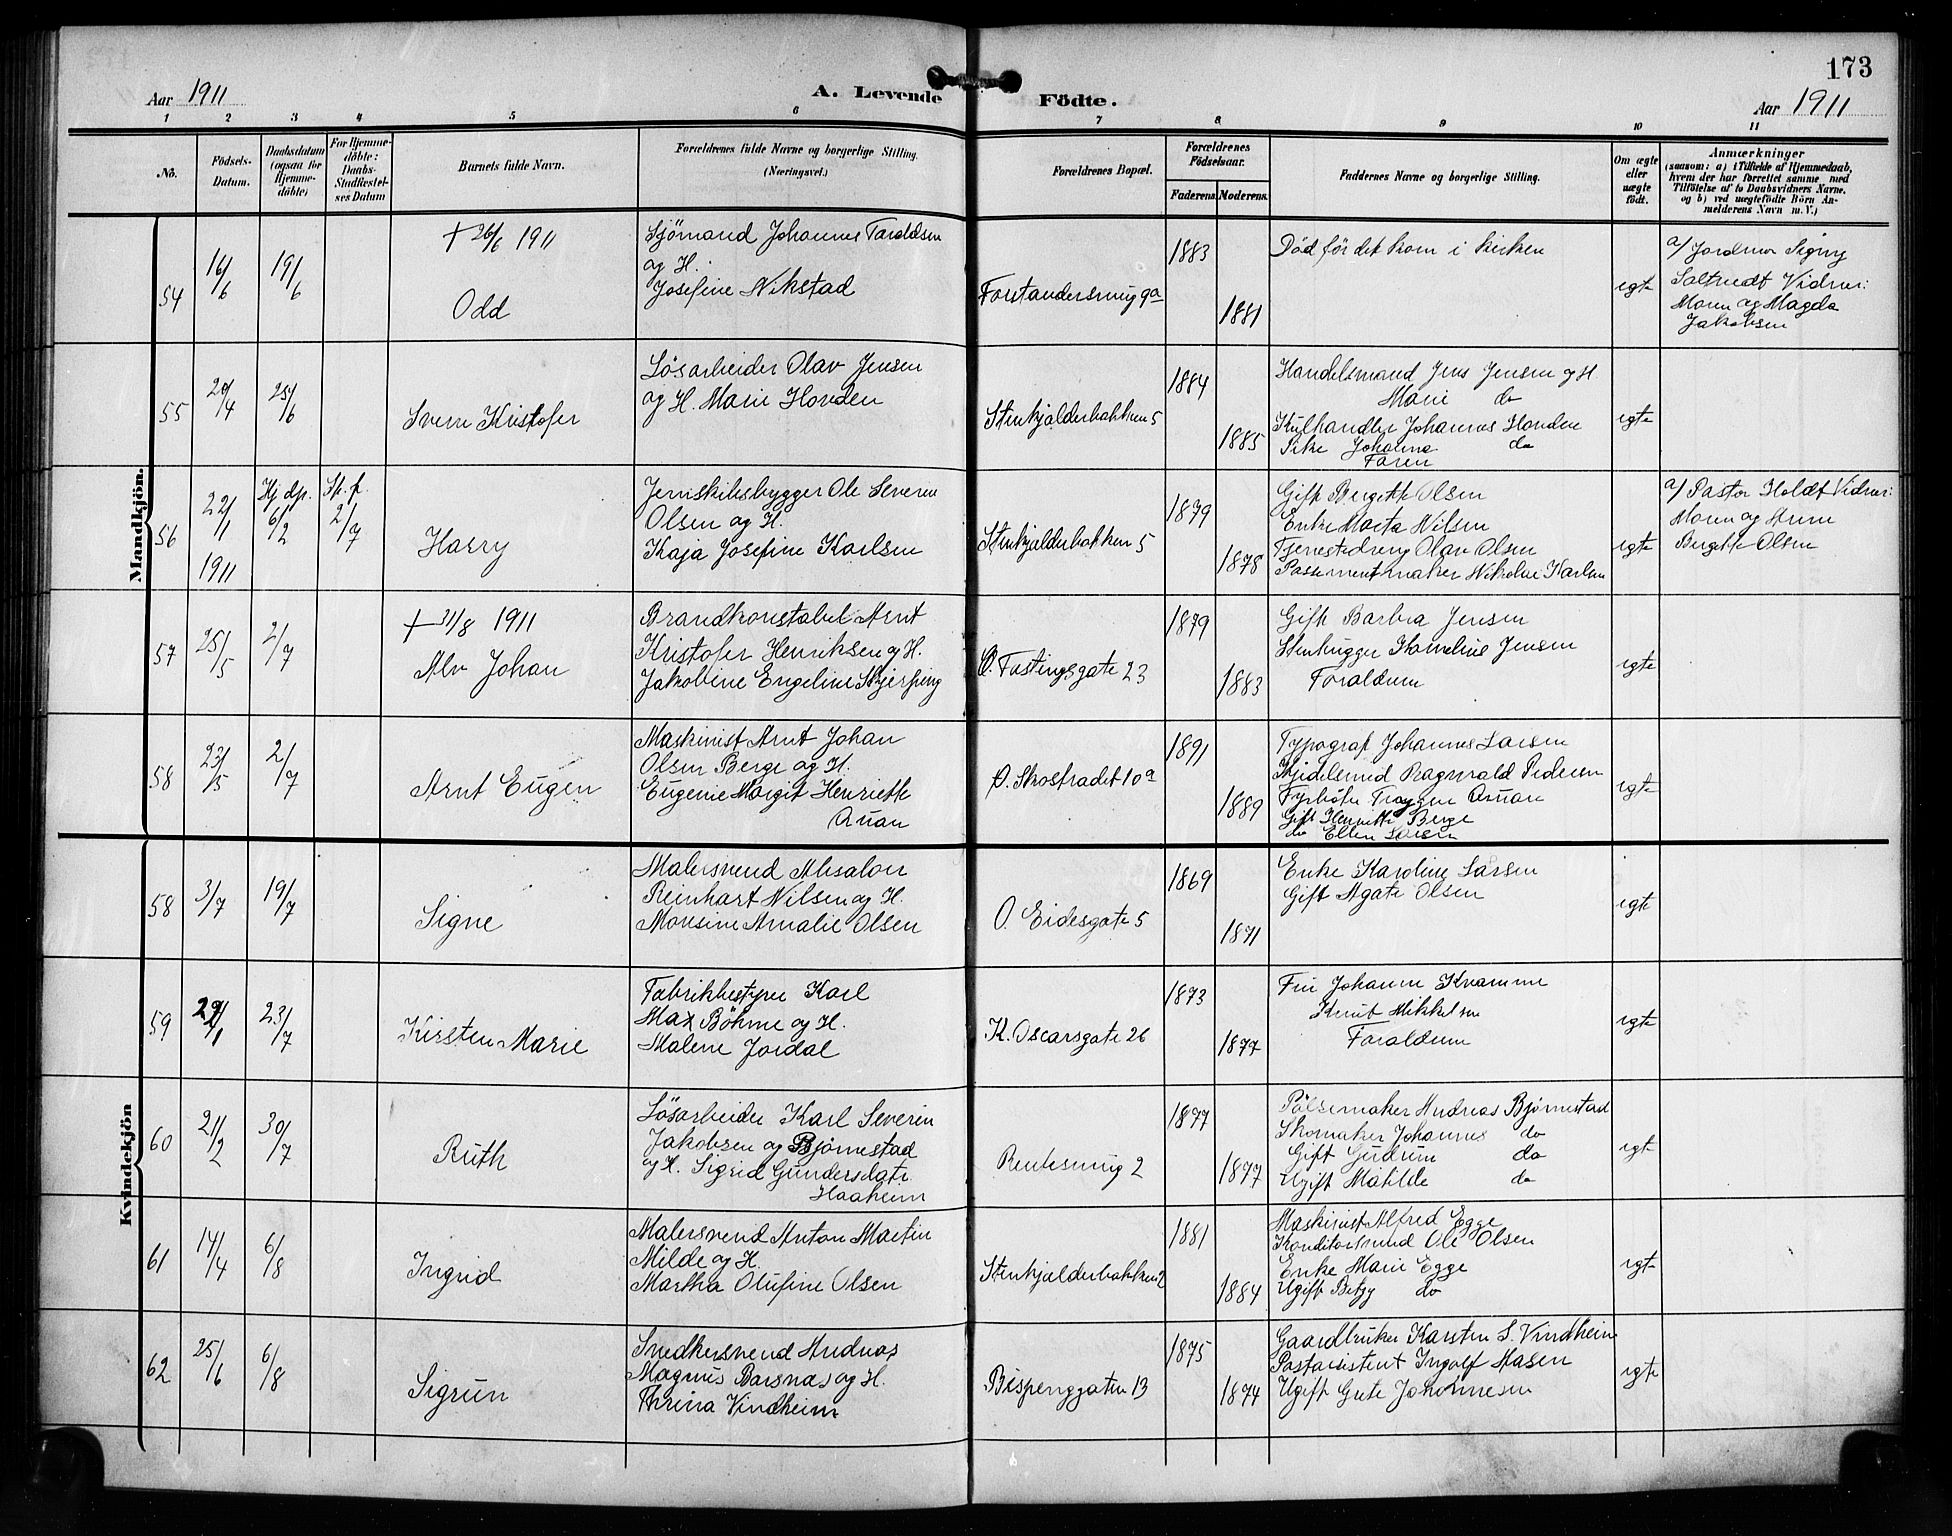 173
Aar 1911
A. Levende Födte.
Aar 1911
1 2 3 4 5 6 7 8 9 10 11
No.
Födsels-
Datum.
Daabsdatum
(ogsaa for
Hjemme-
döbte)
For Hjemme-
döbte:
Daabs-
Stadfæstel-
ses Datum
Barnets fulde Navn.
Forældrenes fulde Navne og borgerlige Stilling.
(Næringsvei.)
Forældrenes Bopæl.
Forældrenes
Födselsaar.
Faderens Moderens.
Faddernes Navne og borgerlige Stilling.
Om ægte
eller
uægte
födt.
Anmærkninger
(saasom: a) i Tilfælde af Hjemmedaab,
hvem der har forrettet samme med
Tilföielse af to Daabsvidners Navne,
og b) ved uægtefödte Börn An-
melderens Navn m. V.)
Mandkjön.
54
16/6
19/6
+ 26/6 1911
Odd
Sjömand Johannes Taraldsen
og H.
Josefine Nikstad
Forstandersmug 9a
1883
1881
Död för det kom i kirken
egte
a/ Jordmor Signy
Saltvedt Vidner:
Moren og Magda
Jakobsen
55
20/4
25/6
Svern Kristofer
Lösarbeider Olav Jensen
og H. Marie Hovden
Stenkjælderbakken 5
1884
1885
Handelsmand Jens Jensen og H.
Marie do
Kulhandler Johannes Hovden
Pike Johanne do
Faren
egte
56
22/1
1911
Hj. dp.
6/2
St. f.
2/7
Harry
Jernskibsbygger Ole Severin
Olsen og H.
Kaja Josefine Karlsen
Stenkjælderbakken 5
1879
1878
Gift Bergitte Olsen
Enke Marta Nilsen
Tjenestedreng Olav Olsen
Passementmaker Nikolai Karlsen
egte
a/ Pastor Holdt Vidner:
Moren og Enke
Bergitte Olsen
57
25/5
2/7
+ 31/8 1911
Alv Johan
Brandkonstabel Arnt
Kristofer Henriksen og H.
Jakobine Engeline Skjerping
Ø. Fastingsgate 23
1879
1883
Gift Barbra Jensen
Stenhugger Kornelius Jensen
Forældrene
egte
58
23/5
2/7
Arnt Eugen
Maskinist Arnt Johan
Olsen Berge og H.
Eugenie Margit Henriette
Quan
Ø. Skostrædet 10a
1891
1889
Typograf Johannes Larsen
Kjedelsmed Ragnvald Pedersen
Fyrböter Trygve Quan
Gift Henriette Berge
do Ellen Larsen
egte
Kvindekjön
58
3/7
19/7
Signe
Malersvend Absalon
Reinhart Nilsen og H.
Monsine Amalie Olsen
O. Eidesgate 5
1869
1871
Enke Karoline Larsen
Gift Agate Olsen
egte
59
29/1
23/7
Kirsten Marie
Fabrikbestyrer Karl
Max Böhme og H.
Malene Jordal
K. Oscarsgate 26
1873
1877
Fru Johanne Kvamme
Knut Mikkelsen
Forældrene
egte
60
21/2
30/7
Ruth
Lösarbeider Karl Severin
Jakobsen og Bjørnestad
og H. Sigrid Gundersdatr.
Haaheim
Reutersmug 2
1877
1877
Pölsemaker Andreas Bjørnestad
Skomaker Johannes do
Gift Gudrun do
Ugift Matilde do
egte
61
14/4
6/8
Ingrid
Malersvend Anton Martin
Milde og H.
Martha Olufine Olsen
Stenkjælderbakken 2
1881
1884
Maskinist Alfred Egge
Konditorsvend Ole Olsen
Enke Marie Egge
Ugift Betzy do
egte
62
25/6
6/8
Sigrun
Snedkersvend Andreas
Magnus Barsnes og H.
Thrina Vindheim
Bispenggaten 13
1875
1874
Gaardbruker Karsten S. Vindheim
Postassistent Ingolf Aasen
Ugift Grete Johannesen
egte